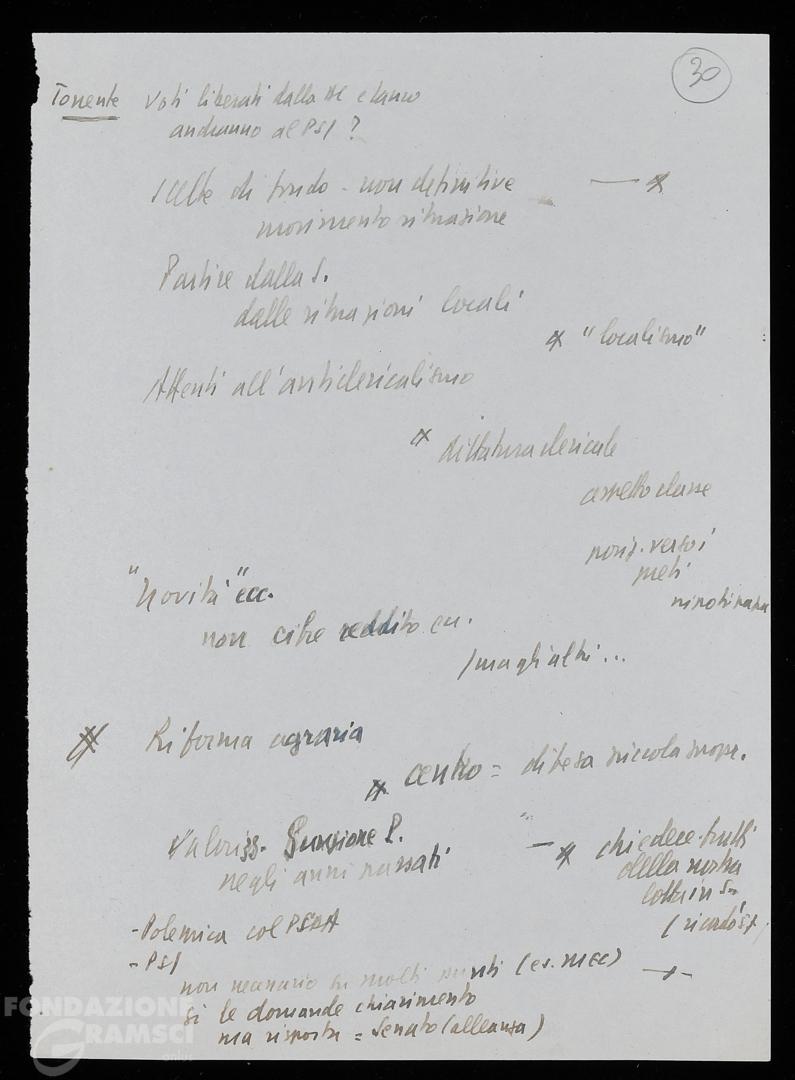 30
Torrente Voti liberati dalla DC e Lauro
andranno al PSI ?
scelte di fondo - non definitive — *
movimento situazione
Partire dalla S.
dalle situazioni locali
* "localismo"
Attenti all'anticlericalismo
* dittatura clericale
aspetto classe
verso i
preti
"Novità" ecc.
non cifre reddito ecc.
magli altri ...
Riforma agraria
* centro = difesa piccola propr.
Valorizz. funzione P.
negli anni passati
— * chiedere frutti
della nostra
lotta in S.
- Polemica col PSDI
- PSI
non necessario su molti punti (es. MEC)
si le domande chiarimento
ma risposta = Senato (alleanza)
FONDAZIONE
GRAMSCI
onlus